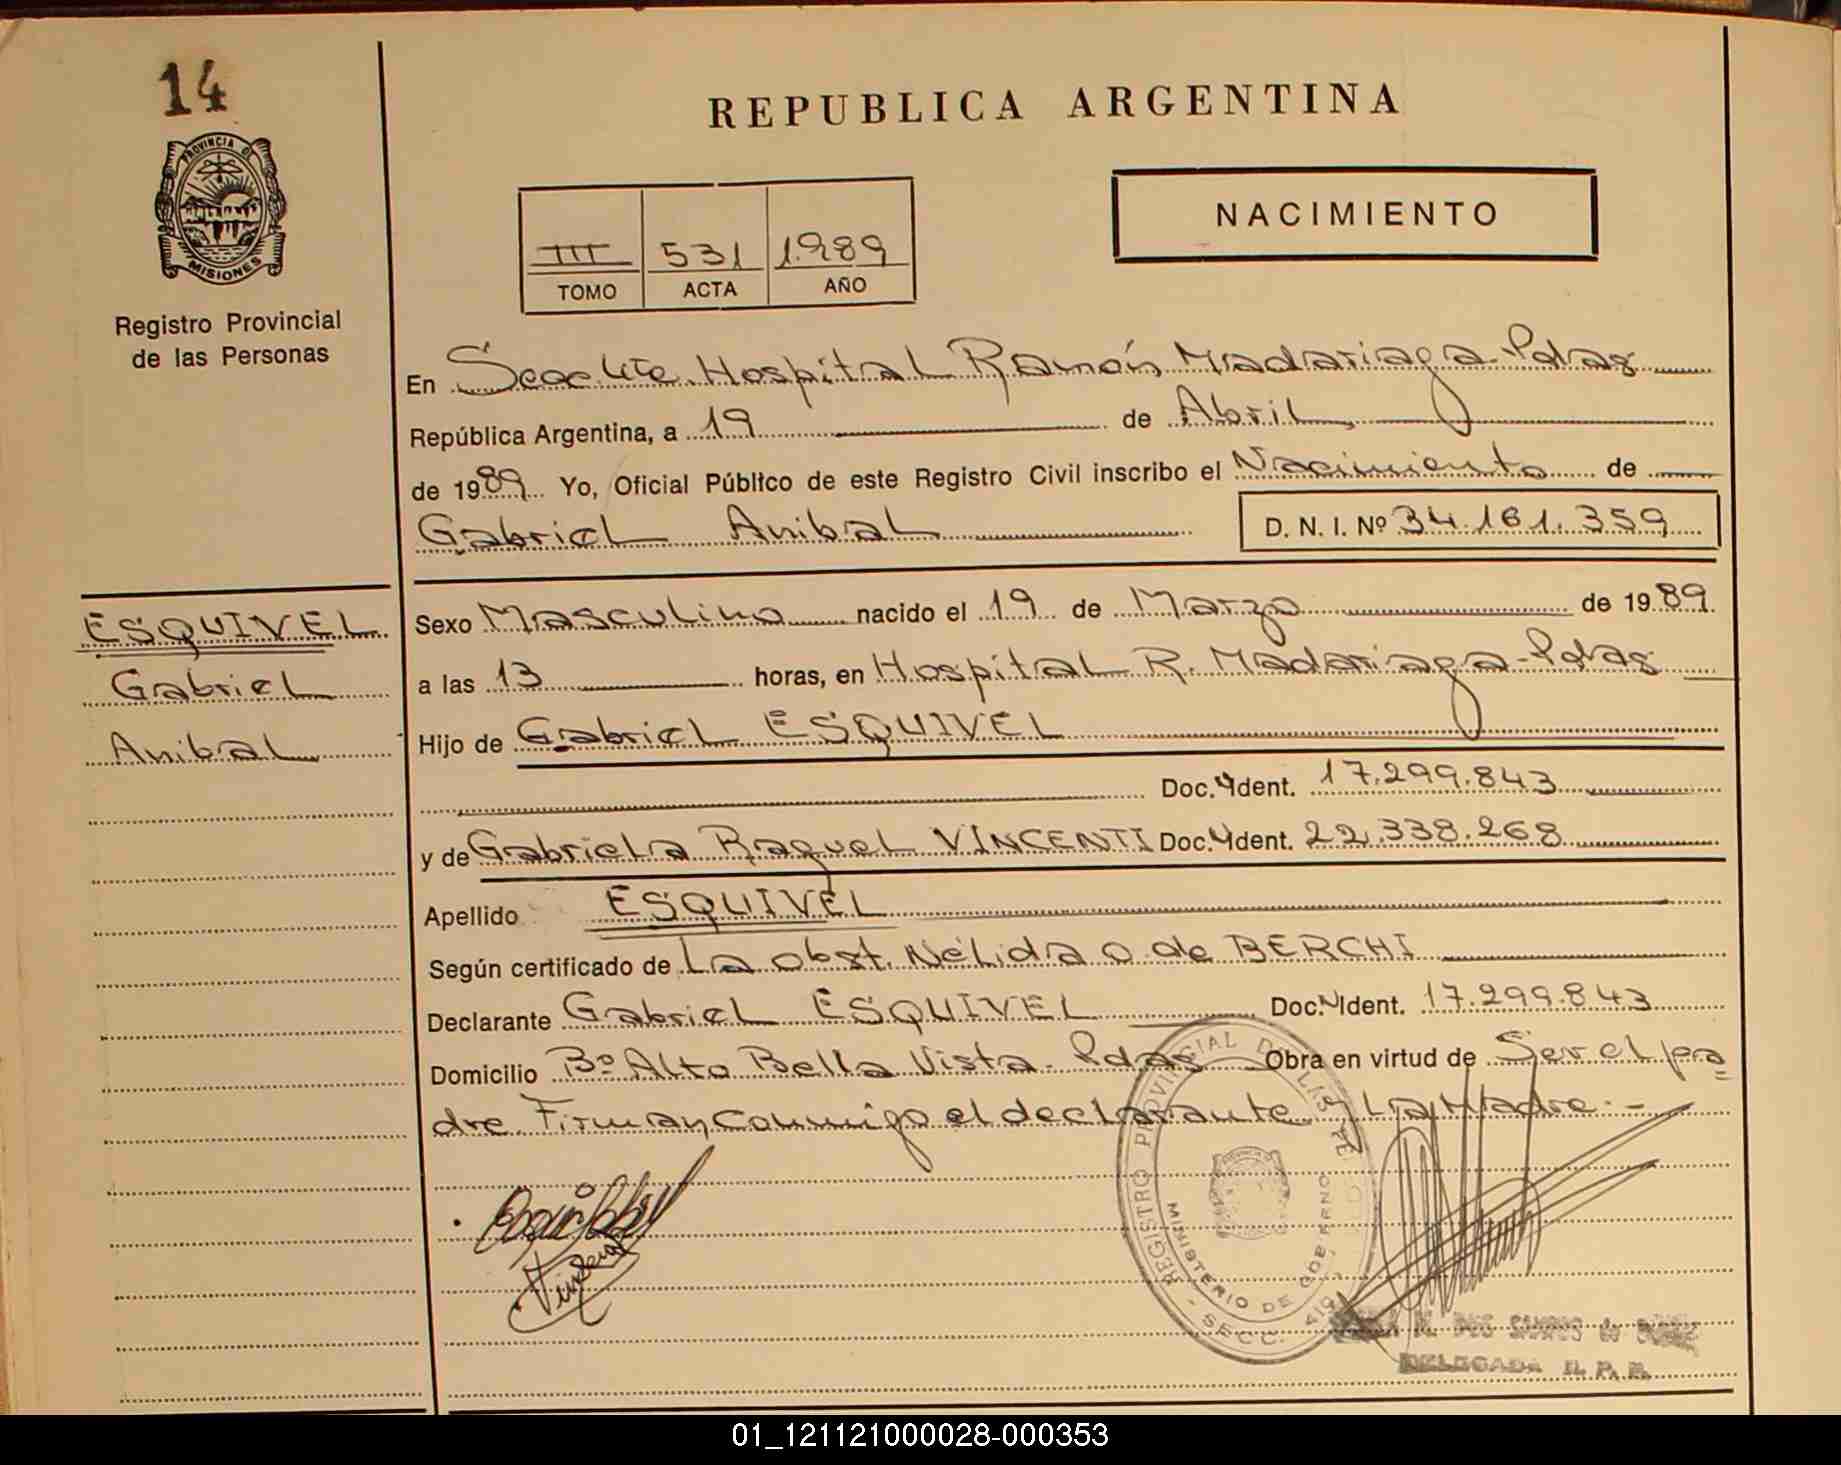 14
REPUBLICA ARGENTINA
PROVINCIA DE
MISIONES
NACIMIENTO
III 531 1.989
TOMO ACTA AÑO
Registro Provincial
de las Personas
En Hospital Ramón Madariaga-Pdas
República Argentina, a 19 de Abril
de 1989 Yo, Oficial Público de este Registro Civil inscribo el Nacimiento de
Gabriel Anibal D. N. I. Nº 34.161.359
ESQUIVEL
Gabriel
Anibal
Sexo Masculino nacido el 19 de Marzo de 1989
a las 13 horas, en Hospital R. Madariaga-Pdas
Hijo de Gabriel ESQUIVEL
Doc. Ident. 17.299.843
y de Gabriela Raquel VINCENTI Doc. Ident. 22.338.268
Apellido ESQUIVEL
Según certificado de La obst. Nélida O. de BERCHI
Declarante Gabriel ESQUIVEL Doc. Ident. 17.299.843
Domicilio Bº Alto Bella Vista- Pdas Obra en virtud de Ser el pa
dre. Firman conmigo el declarante y La Madre.-
REGISTRO PROVINCIAL DE LAS
MINISTERIO DE GOBIERNO
SECC.
DOS SANTOS de
DELEGADA R. P. P.
01_121121000028-000353